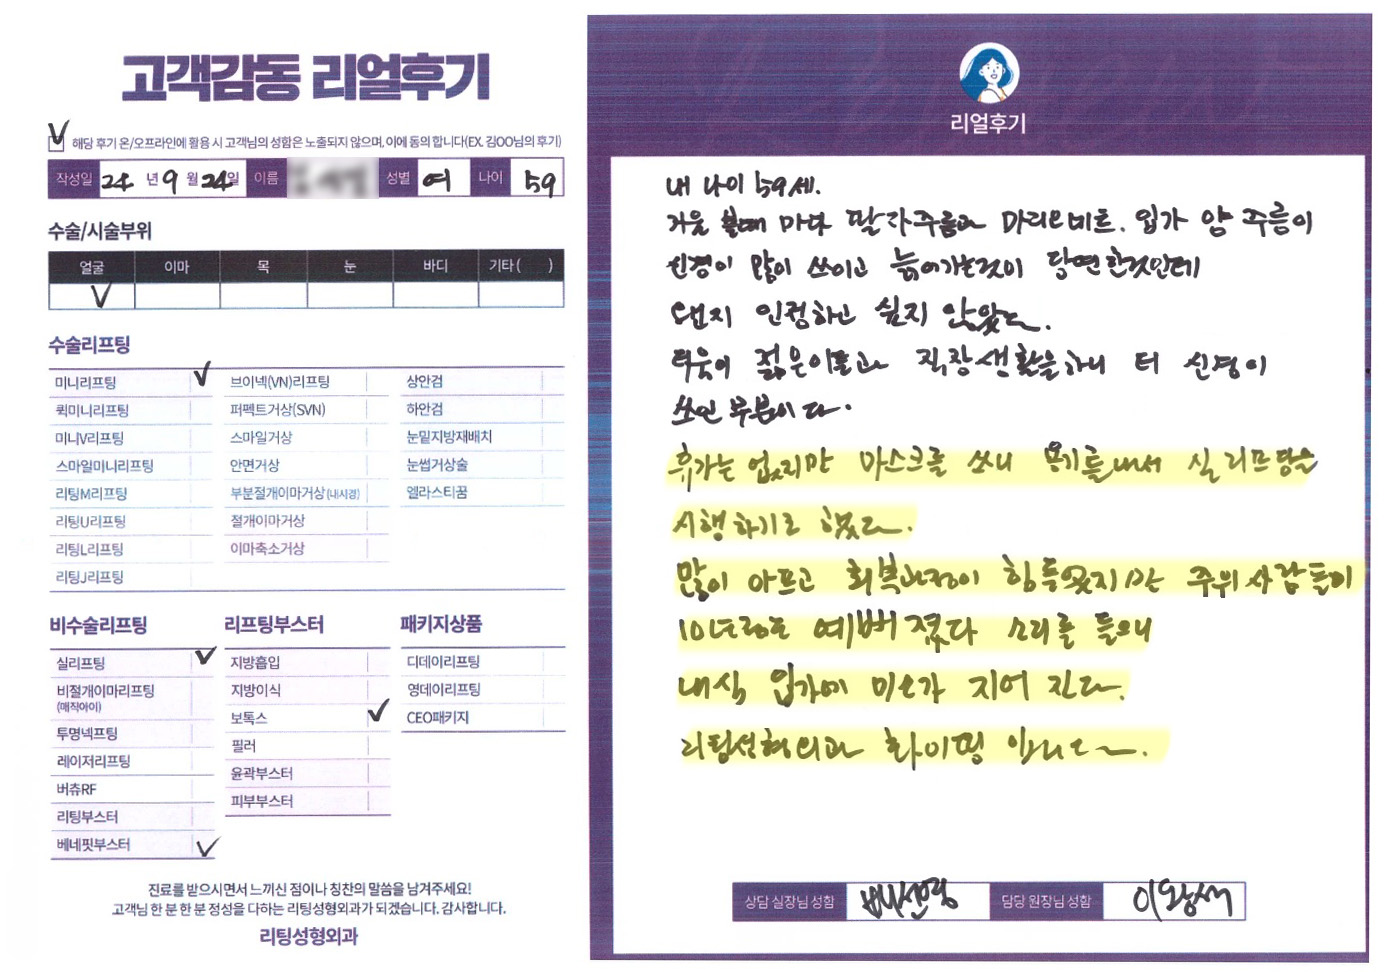 고객감동 리얼후기
해당 후기 온/오프라인에 활용 시 고객님의 성함은 노출되지 않으며, 이에 동의 합니다(EX. 김OO님의 후기)
작성일 24 년 9 월 24일 이름 성별 여 나이 59
수술/시술부위
얼굴 이마 목 눈 바디 기타( )
수술리프팅
미니리프팅 브이넥(VN)리프팅 상안검
퀵미니리프팅 퍼펙트거상(SVN) 하안검
미니V리프팅 스마일거상 눈밑지방재배치
스마일미니리프팅 안면거상 눈썹거상술
리팅M리프팅 부분절개이마거상(내시경) 엘라스티꿈
리팅U리프팅 절개이마거상
리팅L리프팅 이마축소거상
리팅J리프팅
비수술리프팅 리프팅부스터 패키지상품
실리프팅 지방흡입 디데이리프팅
비절개이마리프팅 지방이식 영데이리프팅
(매직아이)
보톡스 CEO패키지
투명넥프팅 필러
레이저리프팅 윤곽부스터
버츄RF 피부부스터
리팅부스터
베네핏부스터
진료를 받으시면서 느끼신 점이나 칭찬의 말씀을 남겨주세요!
고객님 한 분 한 분 정성을 다하는 리팅성형외과가 되겠습니다. 감사합니다.
리팅성형외과
리얼후기
내 나이 59세.
거울 볼때 마다 팔자주름과 마리오네트. 입가 양 주름이
신경이 많이 쓰이고 늙어가는것이 당연한것인데
왠지 인정하고 싶지 않았다.
더욱이 젊은이들과 직장생활을하니 더 신경이
쓰인 부분이다.
휴가는 없지만 마스크를 쓰니 용기를내서 실리프팅을
시행하기로 했다.
많이 아프고 회복과정이 힘들었지만 주위사람들이
10년정도 예뻐졌다 소리를 들으니
내심 입가에 미소가 지어 진다.
리팅성형외과 화이팅 입니다~.
상담 실장님 성함 담당 원장님 성함